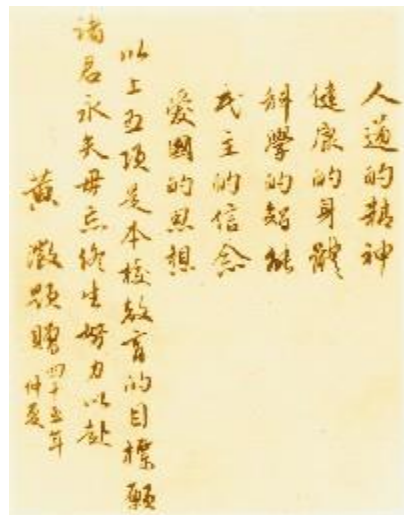 人道的精神
健康的身體
科學的智能
民主的信念
愛國的思想
以上五項是本校教育的目標願
諸君永矢毋忘終生努力以赴
黃澂題贈 四十五年
仲夏